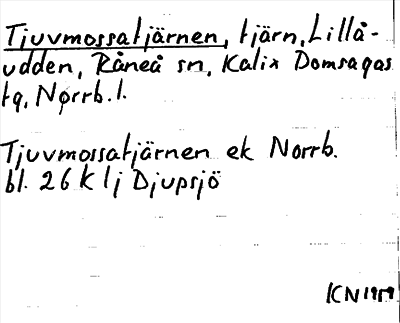 Tjuvmossatjärnen, tjärn, Lillå-
udden, Råneå sn, Kalix Domsagas
tg, Norrb. l.
Tjuvmossatjärnen ek Norrb.
bl. 26 K l j Djupsjö
KN 1959